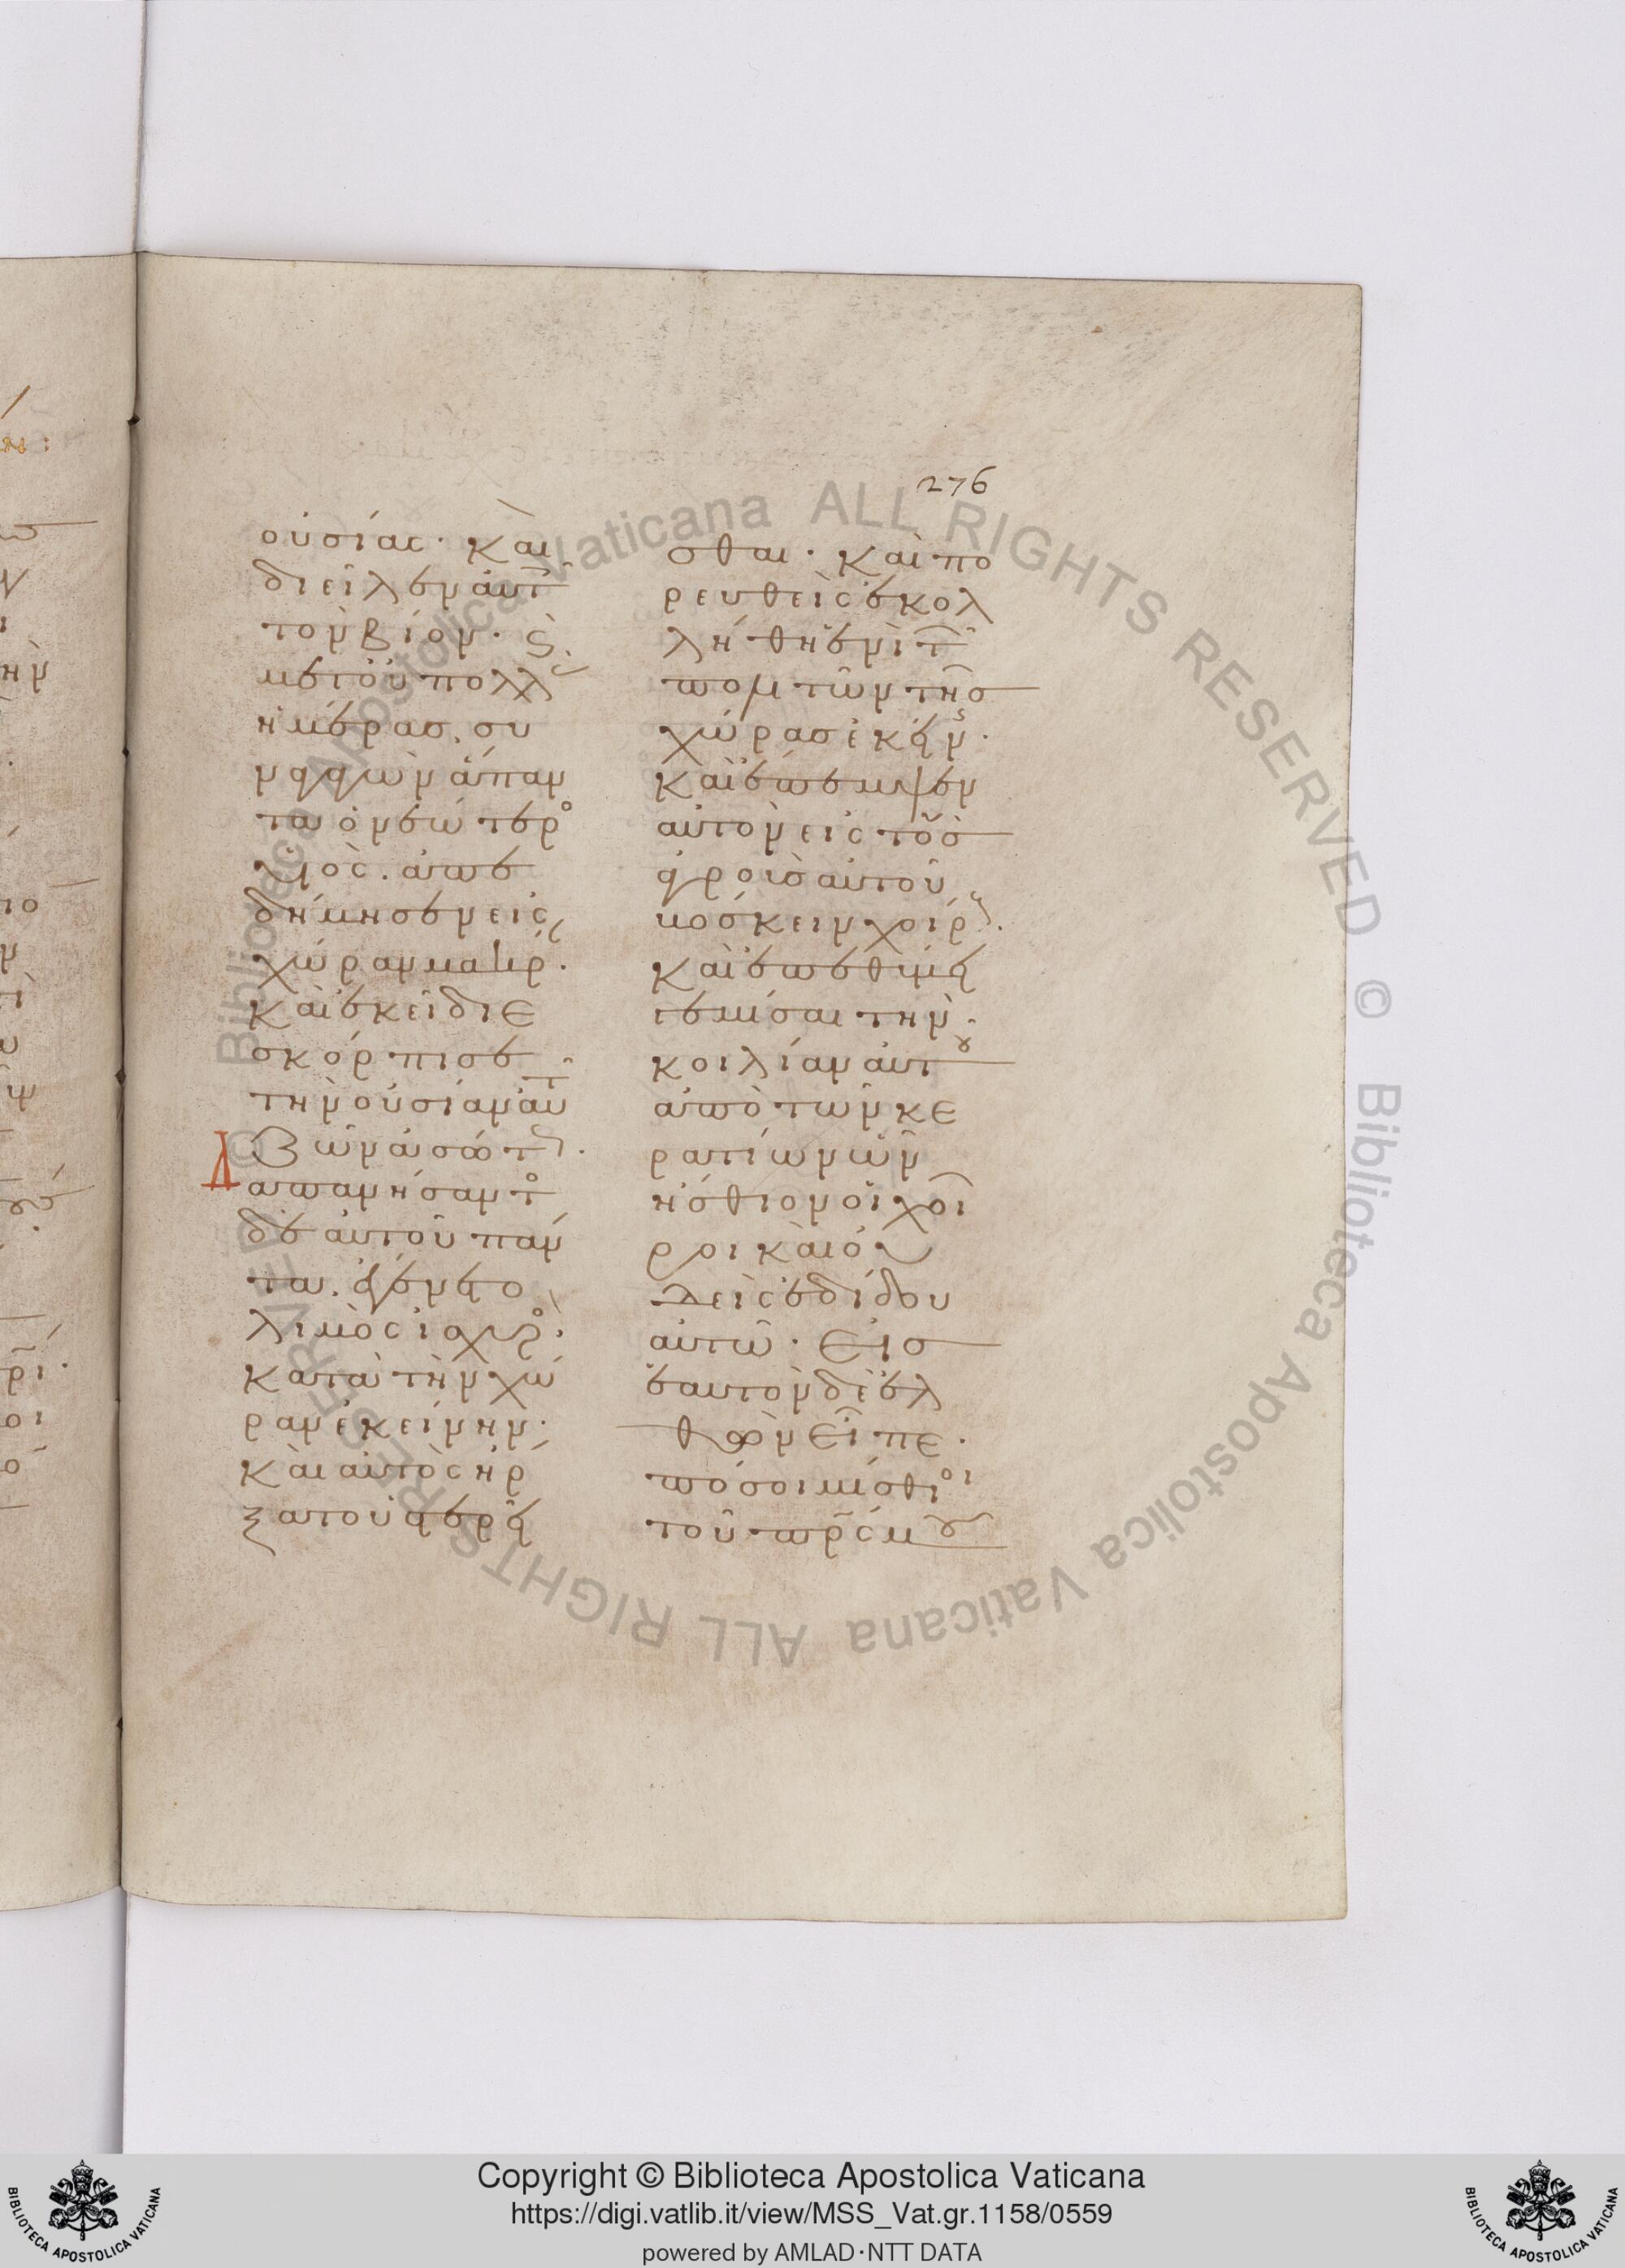 276
ουσίας. Και
διεῖλεν αὐτ
τὸν βίον. ϛ
μετ οὐ πολλ
ἡμέρας. συ
ναγαγὼν ἅπαν
τα ὁ νεώτερο
υἱὸς. ἀπε
δήμησεν εἰς
χώραν μακρ.
Καὶ ἐκεῖ διε
σκόρπισε
τὴν οὐσίαν αὐτ
ζῶν ἀσώτ.
Δαπανήσαντο
δὲ αὐτοῦ πάν
τα. ἐγένετο
λιμὸς ἰσχυρο.
κατὰ τὴν χώ
ραν ἐκείνην.
Και αὐτὸς ἤρ
ξατο ὑστερεῖ
σθαι. Καὶ πο
ρευθεὶς ἐκολ
λήθη ἑνὶ τ
πολιτῶν τῆς
χώρας ἐκείν.
Καὶ ἔπεμψεν
αὐτὸν εἰς τοὺς
ἀγροὺς αὐτοῦ
βόσκειν χοίρ.
Καὶ ἐπεθύμει
γεμίσαι τὴν
κοιλίαν αὐτου
ἀπὸ τῶν κε
ρατίων ὧν
ἤσθιον οἱ χοῖ
ροι καὶ οὐ
δεὶς ἐδίδου
αὐτῶ. Εἰς
ἑαυτὸν δὲ ἐλ
θὼν εἶπε.
πόσοι μίσθιοι
τοῦ πρς μου
Copyright © Biblioteca Apostolica Vaticana
https://digi.vatlib.it/view/MSS_Vat.gr.1158/0559
powered by AMLAD·NTT DATA
BIBLIOTECA APOSTOLICA VATICANA
BIBLIOTECA APOSTOLICA VATICANA
Biblioteca Apostolica Vaticana ALL RIGHTS RESERVED © Biblioteca Apostolica Vaticana ALL RIGHTS RESERVED ©